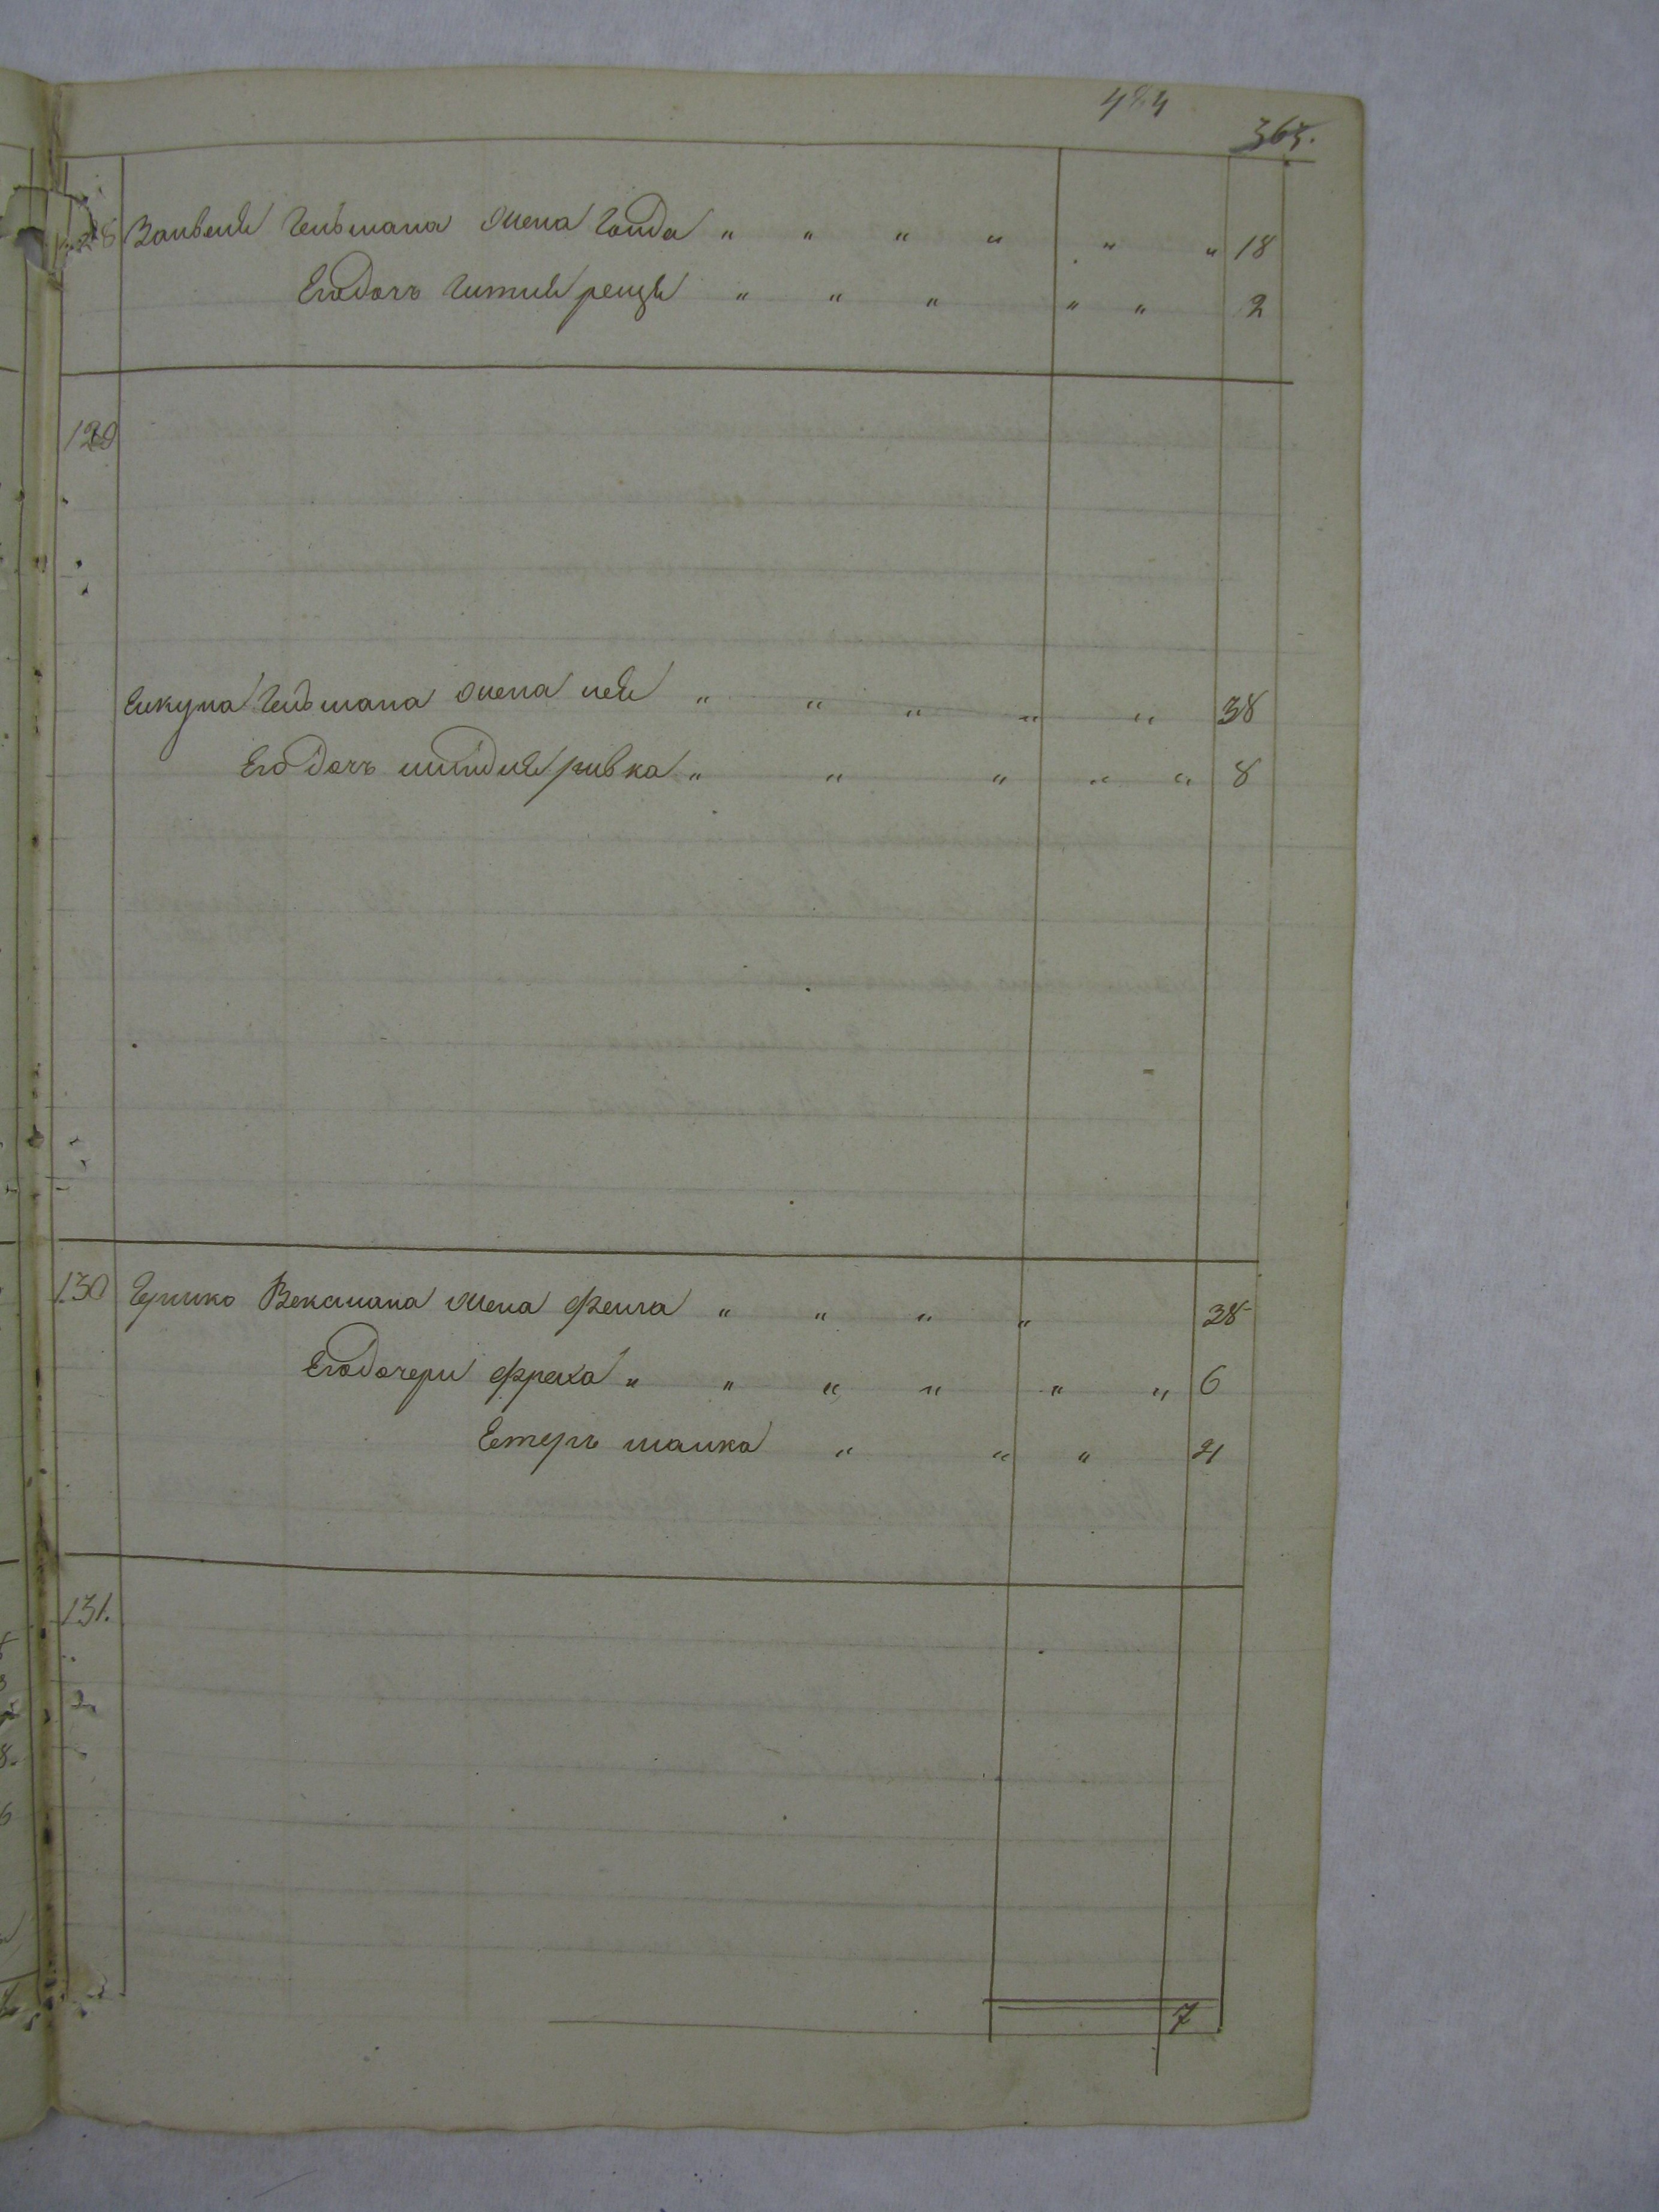 484
363.
128 Занвеля Гельмана жена Голда " " " " " " 18
Его дочь Гитля рейзя " " " " " 2
129
Еикупа Гельмана жена нехе " " " " " 38
Его дочь шиндля ривка " " " " " 8
130 Гершко Векслмана жена Фейга " " " " 38
Его дочери Фрейха " " " " " " 6
Естеръ малка " " " 4
131.
7